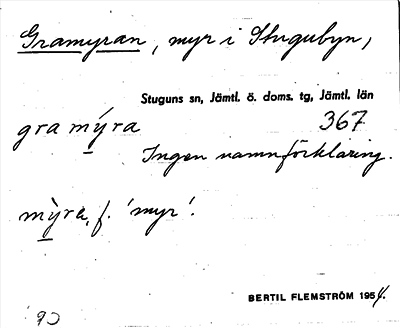 Gramyran, myr i Stugubyn,
Stuguns sn, Jämtl. ö. doms. tg, Jämtl. län
gra mýra 367
Ingen namnförklaring.
mỳra, f. 'myr'.
BERTIL FLEMSTRÖM 1954.